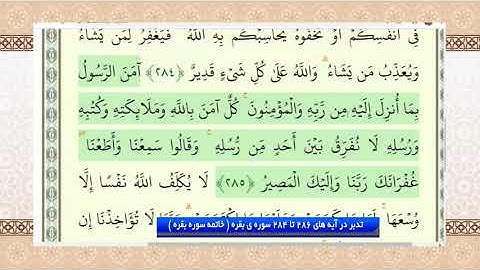 فِى أَنفُسِكُمْ أَوْ تُخْفُوهُ يُحَاسِبْكُم بِهِ اللَّهُ فَيَغْفِرُ لِمَن يَشَآءُ
وَيُعَذِّبُ مَن يَشَآءُ وَاللَّهُ عَلَىٰ كُلِّ شَىْءٍ قَدِيرٌ ﴿٢٨٤﴾ آمَنَ الرَّسُولُ
بِمَا أُنزِلَ إِلَيْهِ مِن رَّبِّهِ وَالْمُؤْمِنُونَ كُلٌّ آمَنَ بِاللَّهِ وَمَلَائِكَتِهِ وَكُتُبِهِ
وَرُسُلِهِ لَا نُفَرِّقُ بَيْنَ أَحَدٍ مِّن رُّسُلِهِ وَقَالُوا سَمِعْنَا وَأَطَعْنَا
غُفْرَانَكَ رَبَّنَا وَإِلَيْكَ الْمَصِيرُ ﴿٢٨٥﴾ لَا يُكَلِّفُ اللَّهُ نَفْسًا إِلَّا
وُسْعَهَا رَبَّنَا لَا تُؤَاخِذْنَا إِن
تدبر در آیه های ۲۸۶ تا ۲۸۴ سوره ی بقره ( خاتمه سوره بقره )